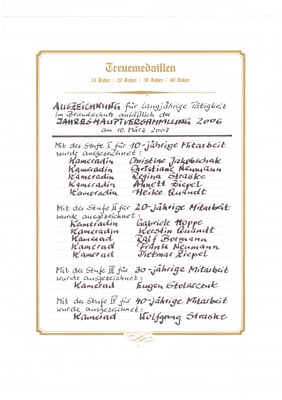 Treuemedaillen
10 Jahre / 20 Jahre / 30 Jahre / 40 Jahre
AUSZEICHNUNG für langjährige Tätigkeit
im Brandschutz anläßlich der
JAHRESHAUPTVERSAMMLUNG 2006
am 10. März 2007
Mit der Stufe I für 10-jährige Mitarbeit
wurde ausgezeichnet:
Kameradin Christine Jakubschak
Kameradin Christiane Neumann
Kameradin Regina Straske
Kameradin Annett Ziepel
Kameradin Heike Quandt
Mit der Stufe II für 20-jährige Mitarbeit
wurde ausgezeichnet:
Kameradin Gabriele Hoppe
Kameradin Kerstin Quandt
Kamerad Ralf Bormann
Kamerad Frank Neumann
Kamerad Dietmar Ziepel
Mit der Stufe III für 30-jährige Mitarbeit
wurde ausgezeichnet:
Kamerad Eugen
Mit der Stufe IV für 40-jährige Mitarbeit
wurde ausgezeichnet:
Kamerad Wolfgang Straske